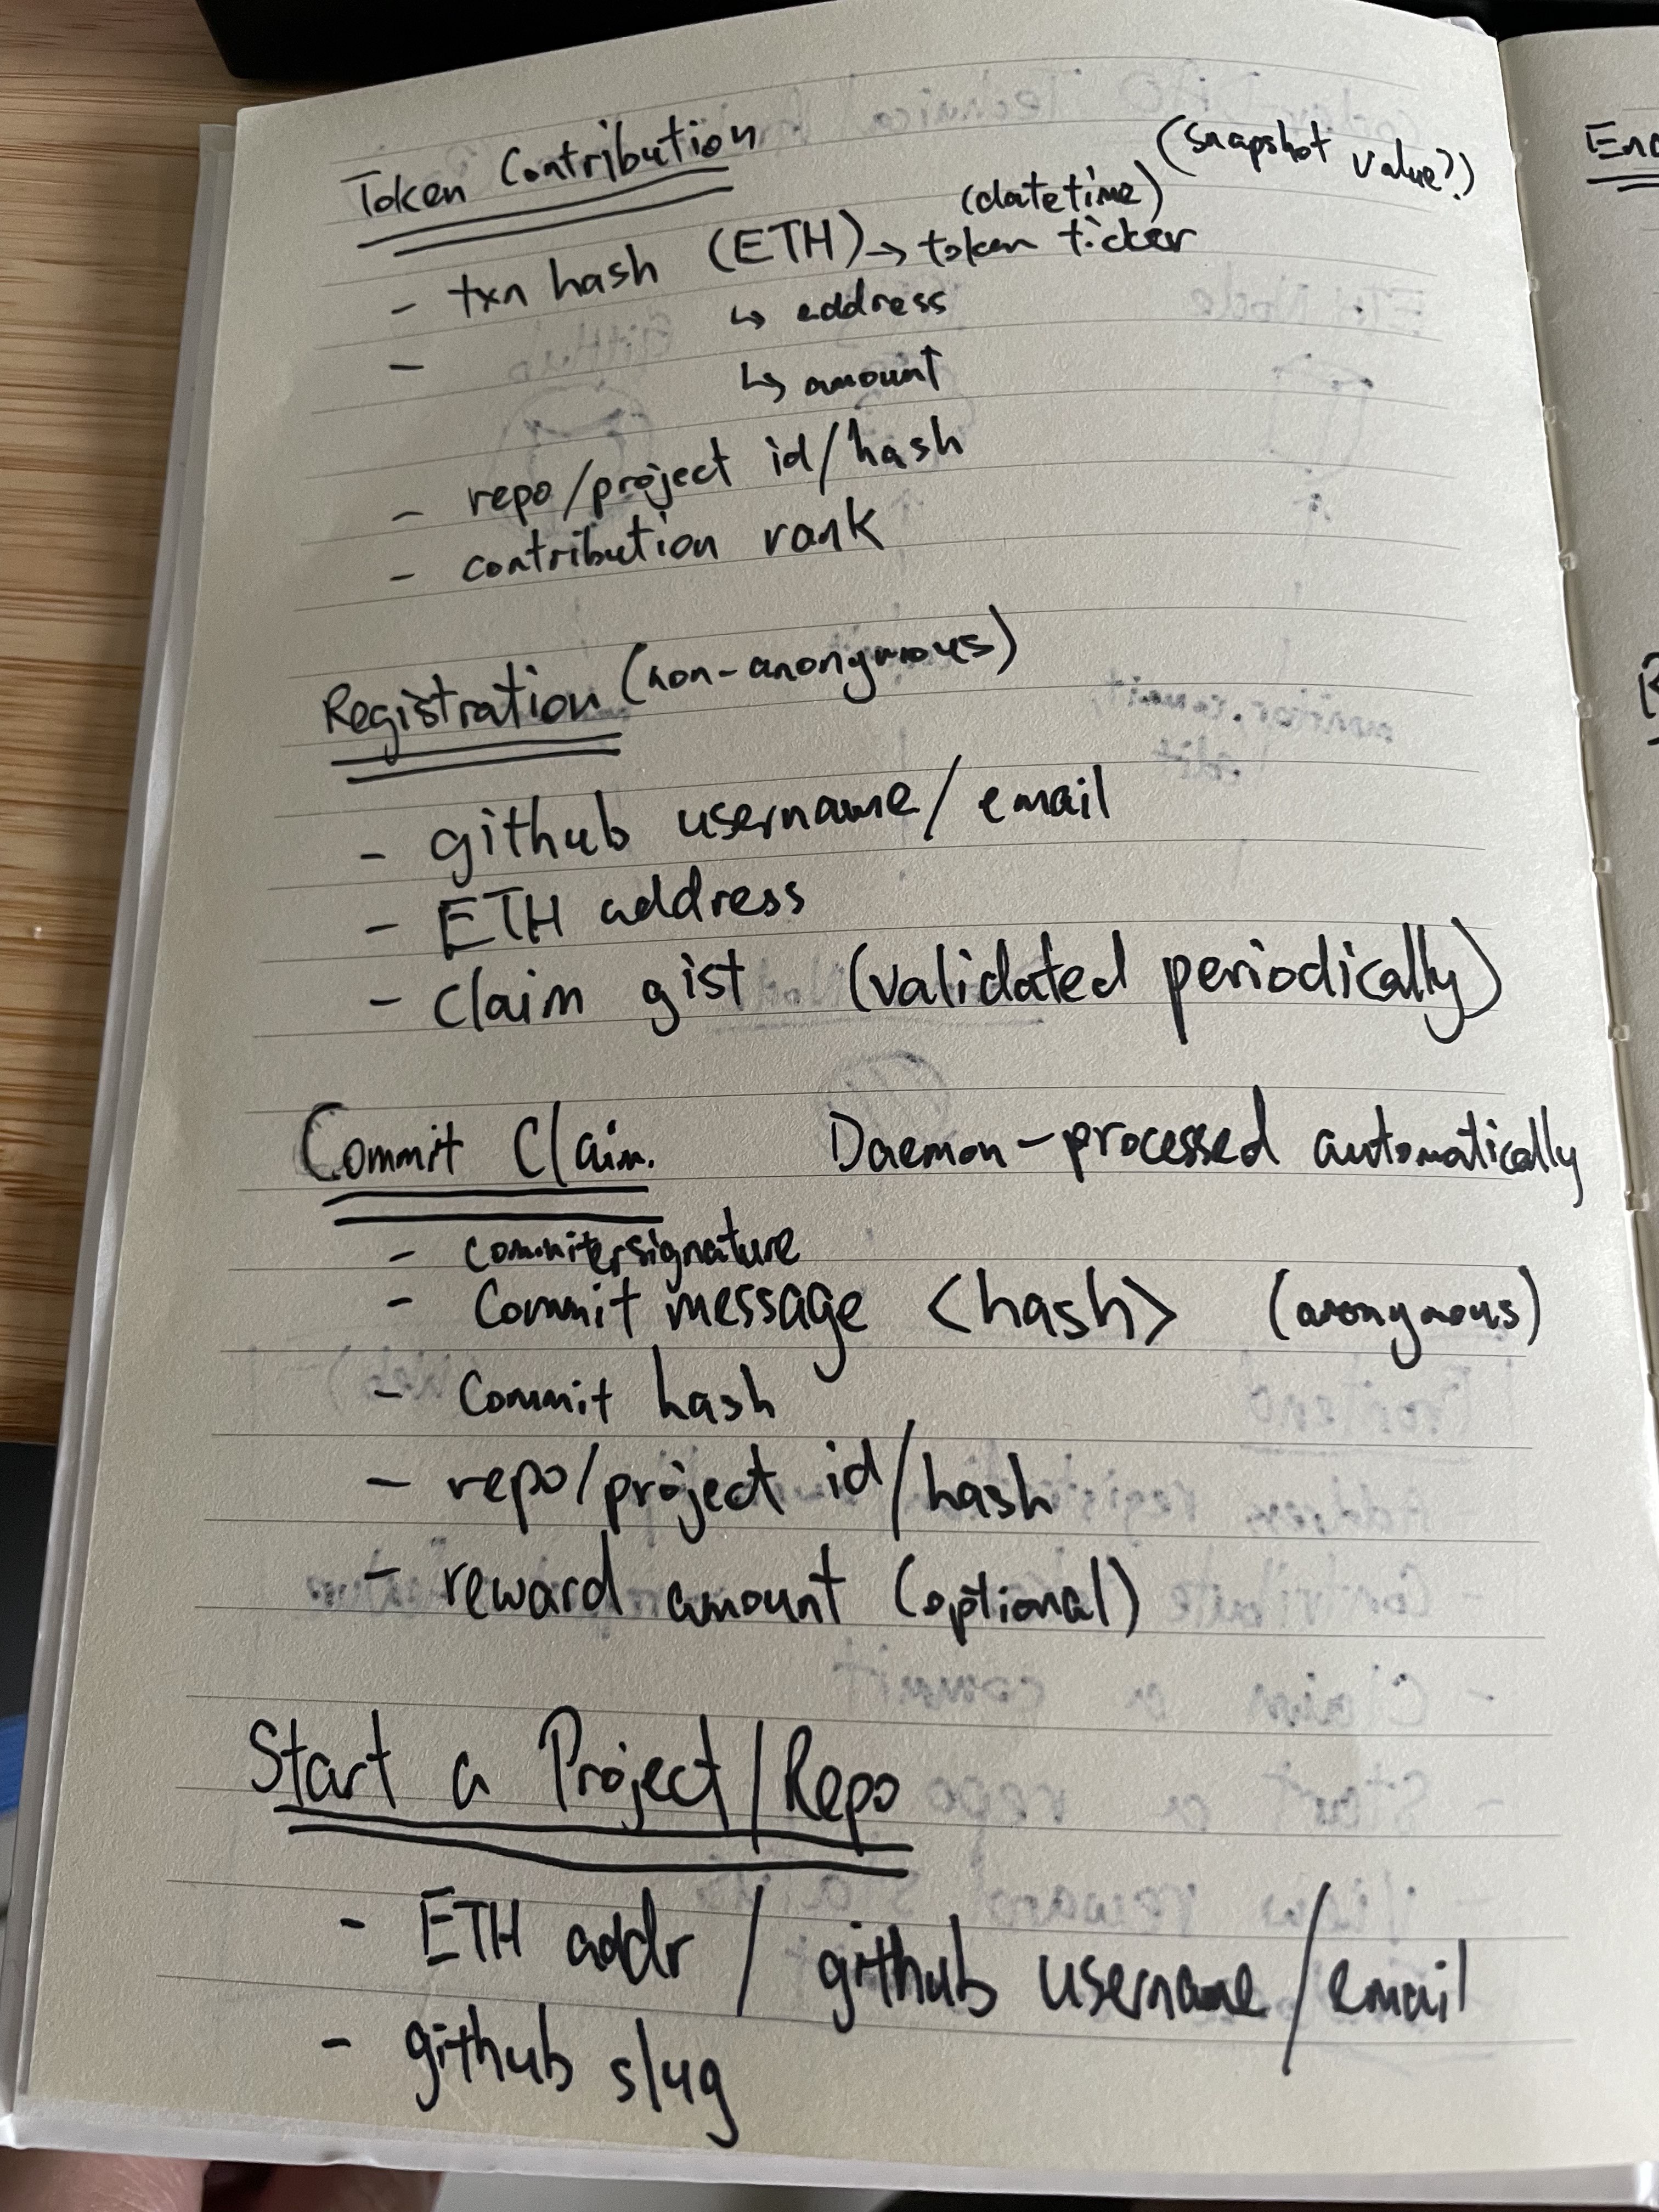 Token Contribution
(snapshot value?)
(datetime)
- txn hash (ETH) → token ticker
↳ address
-
↳ amount
- repo/project id/hash
- contribution rank
Registration (non-anonymous)
- github username/email
- ETH address
- claim gist (validated periodically)
Commit Claim. Daemon-processed automatically
- commitersignature
- Commit message <hash> (anonymous)
- Commit hash
- repo/project id/hash
- reward amount (optional)
Start a Project/Repo
- ETH addr / github username/email
- github slug